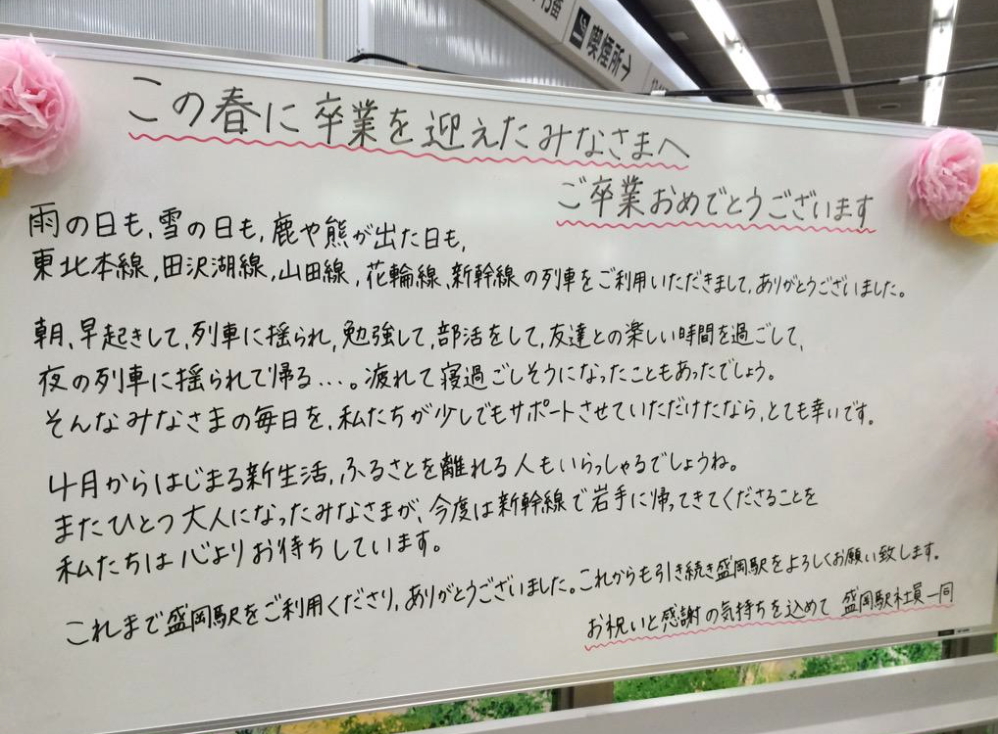 喫煙所→
この春に卒業を迎えたみなさまへ
ご卒業おめでとうございます
雨の日も、雪の日も、鹿や熊が出た日も、
東北本線、田沢湖線、山田線、花輪線、新幹線の列車をご利用いただきまして、ありがとうございました。
朝、早起きして、列車に揺られ、勉強して、部活をして、友達との楽しい時間を過ごして、
夜の列車に揺られて帰る…。疲れて寝過ごしそうになったこともあったでしょう。
そんなみなさまの毎日を、私たちが少しでもサポートさせていただけたなら、とても幸いです。
4月からはじまる新生活、ふるさとを離れる人もいらっしゃるでしょうね。
またひとつ大人になったみなさまが、今度は新幹線で岩手に帰ってきてくださることを
私たちは心よりお待ちしています。
これまで盛岡駅をご利用くださり、ありがとうございました。これからも引き続き盛岡駅をよろしくお願い致します。
お祝いと感謝の気持ちを込めて 盛岡駅社員一同